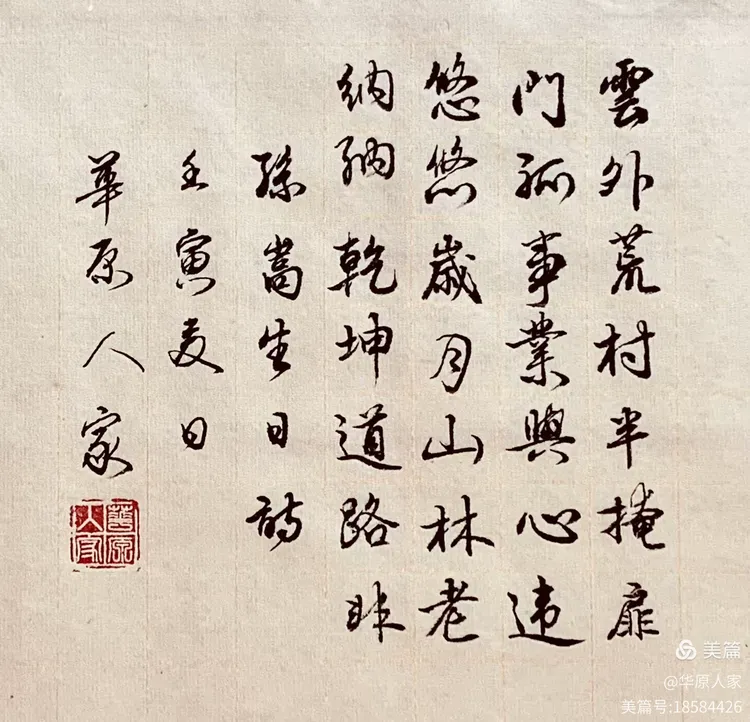 雲外荒村半掩扉
門孤事業與心違
悠悠歲月山林老
納納乾坤道路非
孫嵩生日詩
壬寅夏日
華原人家
華原人家
美篇
@华原人家
美篇号:18584426